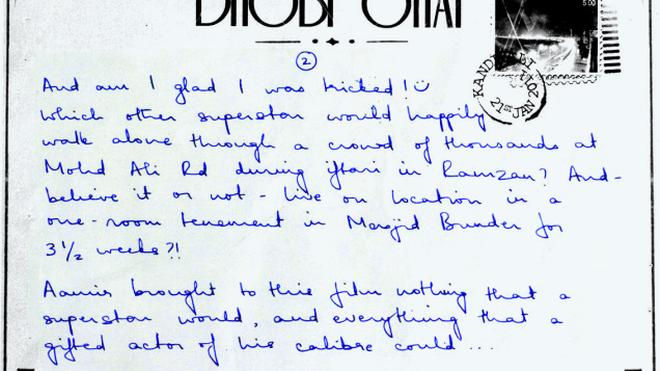 DHOBI GHAT
5.00
KANDIVLI
21st JAN 2011
2
And am I glad I was tricked! ☺
Which other superstar would happily
walk alone through a crowd of thousands at
Mohd Ali Rd during iftari in Ramzan? And -
believe it or not - live on location in a
one-room tenement in Masjid Bunder for
3 1/2 weeks?!
Aamir brought to this film nothing that a
superstar would, and everything that a
gifted actor of his calibre could...